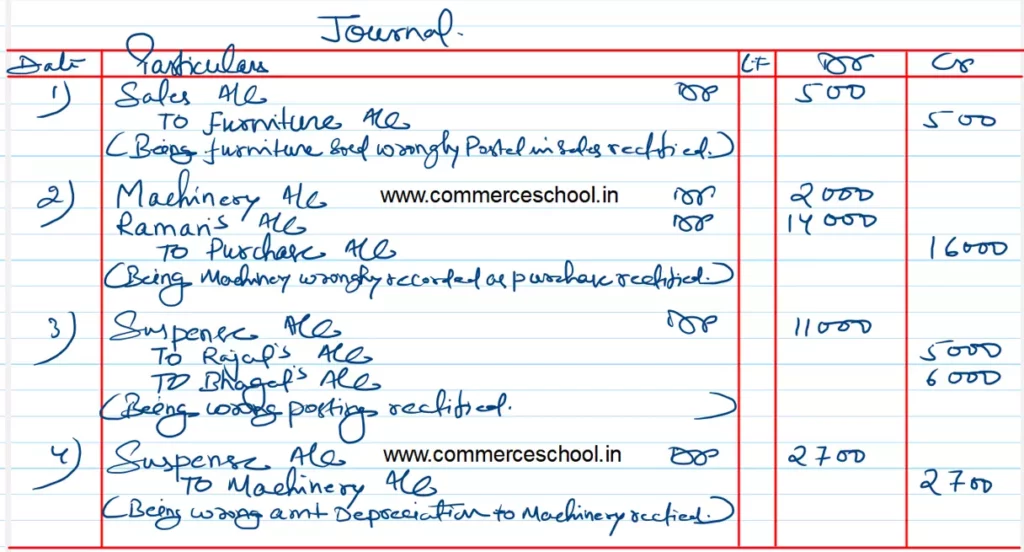 Journal.
Date Particulars LF Dr Cr
1) Sales A/c Dr 500
To Furniture A/c 500
(Being furniture Sold wrongly Posted in sales rectified.)
2) Machinery A/c www.commerceschool.in Dr 2000
Raman's A/c Dr 14000
To Purchase A/c 16000
(Being Machiney wrongly recorded as purchase rectified.)
3) Suspense A/c Dr 11000
To Rajat's A/c 5000
To Bhagat's A/c 6000
(Being wrong posting rectified.)
4) Suspense A/c www.commerceschool.in Dr 2700
To Machinery A/c 2700
(Being wrong amt Depreciation to Machinery rectied.)